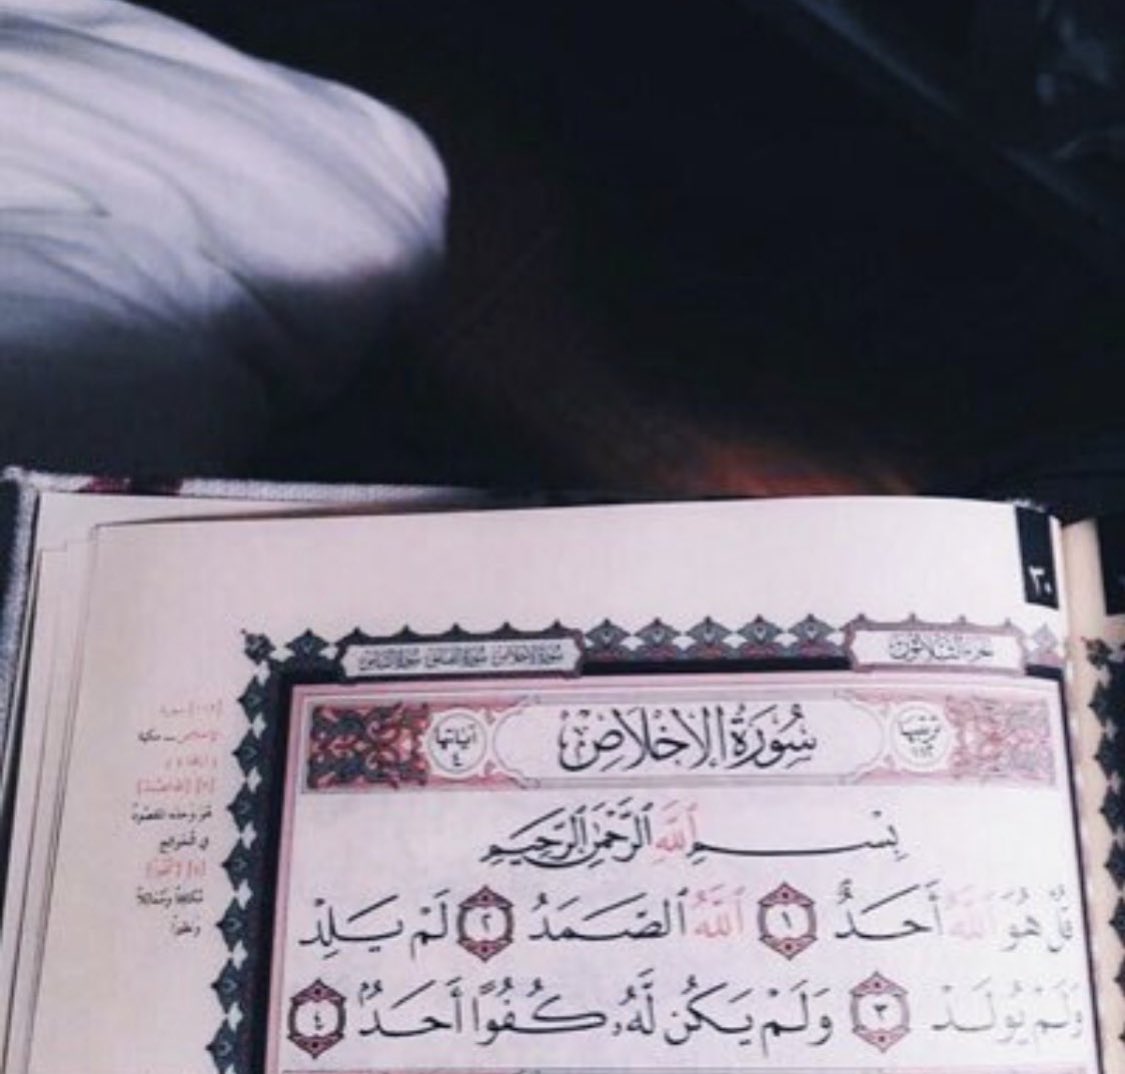 ٣٠
الجزء الثلاثون
سورة الإخلاص سورة الفلق سورة الناس
ترتيبها ١١٢
سُورَةُ الإِخْلَاصِ
آياتها ٤
بِسْمِ ٱللَّهِ ٱلرَّحْمَٰنِ ٱلرَّحِيمِ
قُلْ هُوَ ٱللَّهُ أَحَدٌ ١ ٱللَّهُ ٱلصَّمَدُ ٢ لَمْ يَلِدْ
وَلَمْ يُولَدْ ٣ وَلَمْ يَكُن لَّهُۥ كُفُوًا أَحَدٌۢ ٤
سورة
الإخلاص - مكية
هو وحده المقصود
في الحوائج
مكافئا ومماثلا
ونظيرا